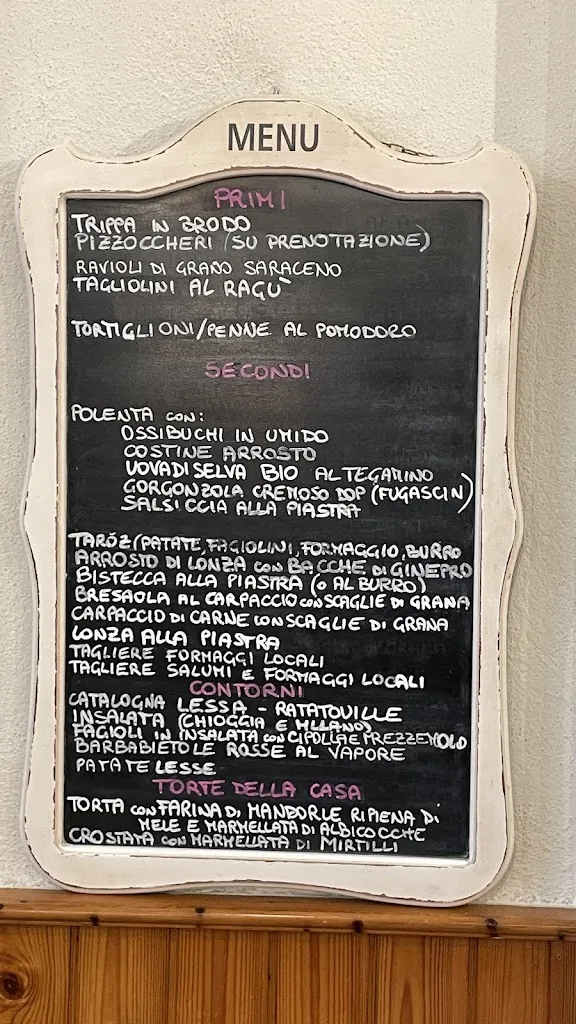 MENU
PRIMI
TRIPPA IN BRODO
PIZZOCCHERI (SU PRENOTAZIONE)
RAVIOLI DI GRANO SARACENO
TAGLIOLINI AL RAGÙ
TORTIGLIONI/PENNE AL POMODORO
SECONDI
POLENTA CON:
OSSIBUCHI IN UMIDO
COSTINE ARROSTO
UOVA DI SELVA BIO AL TEGAMINO
GORGONZOLA CREMOSO DOP (FUGASCIN)
SALSICCIA ALLA PIASTRA
TARÓZ (PATATE, FAGIOLINI, FORMAGGIO, BURRO
ARROSTO DI LONZA CON BACCHE DI GINEPRO
BISTECCA ALLA PIASTRA (O AL BURRO)
BRESAOLA AL CARPACCIO CON SCAGLIE DI GRANA
CARPACCIO DI CARNE CON SCAGLIE DI GRANA
LONZA ALLA PIASTRA
TAGLIERE FORMAGGI LOCALI
TAGLIERE SALUMI E FORMAGGI LOCALI
CONTORNI
CATALOGNA LESSA - RATATOUILLE
INSALATA (CHIOGGIA E MILANO)
FAGIOLI IN INSALATA CON CIPOLLA E PREZZEMOLO
BARBABIETOLE ROSSE AL VAPORE
PATATE LESSE
TORTE DELLA CASA
TORTA CON FARINA DI MANDORLE RIPIENA DI
MELE E MARMELLATA DI ALBICOCCHE
CROSTATA CON MARMELLATA DI MIRTILLI